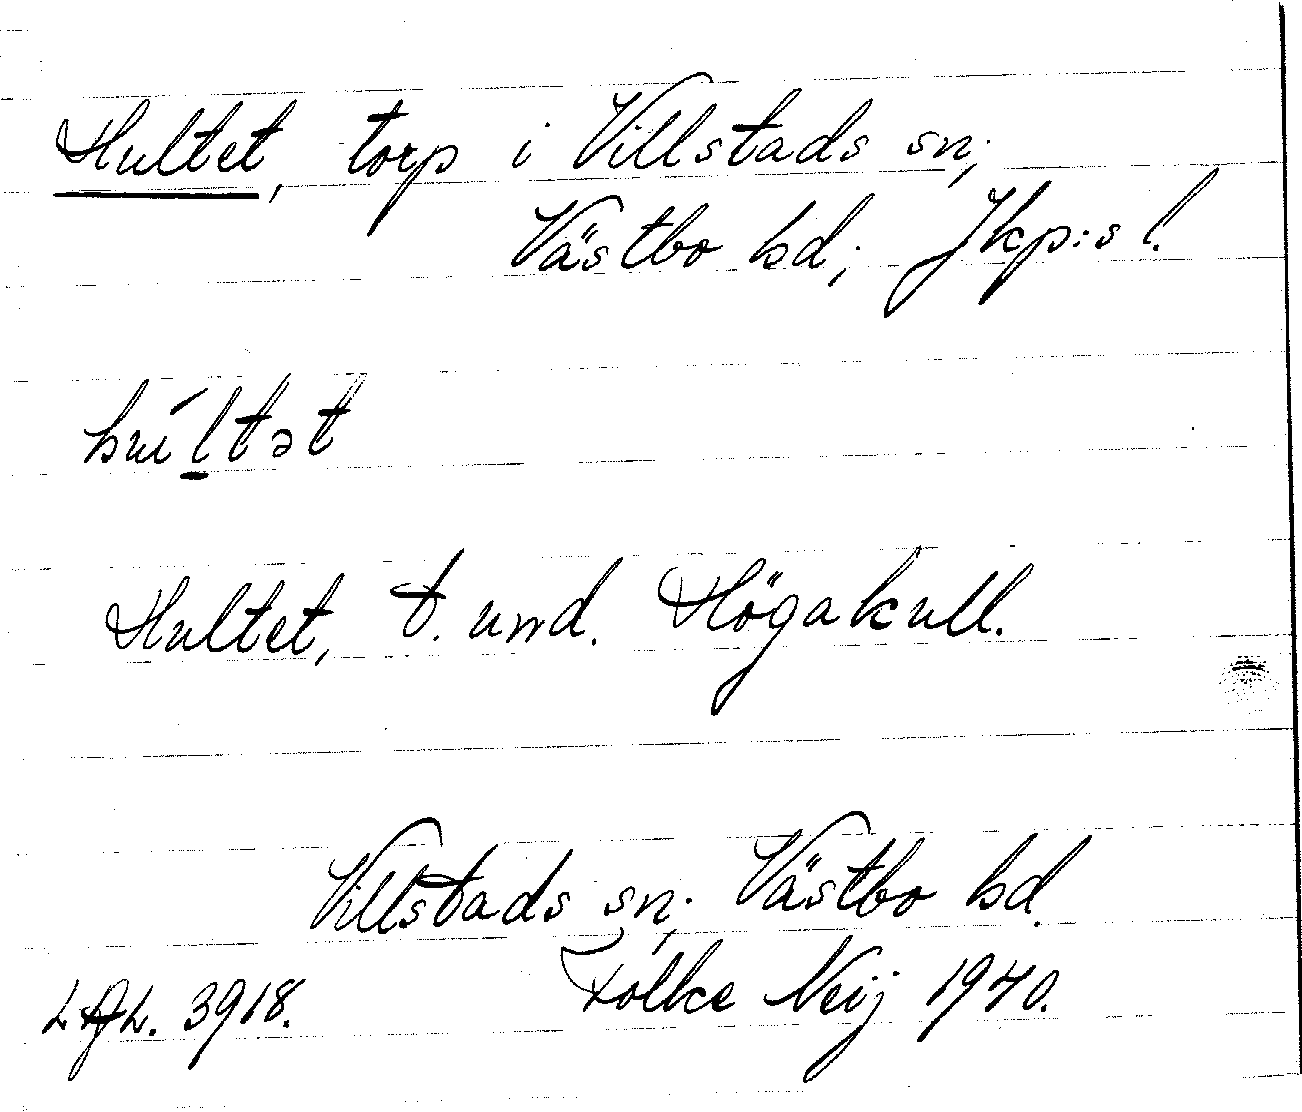 Hultet, torp i Villstads sn,
Västbo hd; Jkp:s l.
húltət
Hultet, t. und. Högakull.
Villstads sn; Västbo hd.
LAL. 3918. Folke Neij 1940.